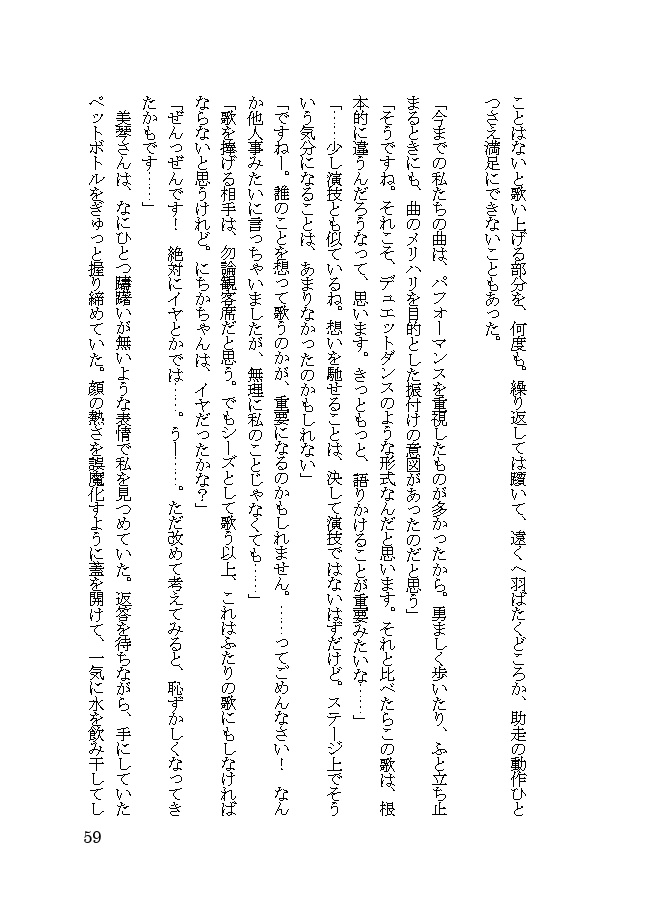 ことはないと歌い上げる部分を、何度も。繰り返しては躓いて、遠くへ羽ばたくどころか、助走の動作ひと
つさえ満足にできないこともあった。
「今までの私たちの曲は、パフォーマンスを重視したものが多かったから。勇ましく歩いたり、ふと立ち止
まるときにも、曲のメリハリを目的とした振付けの意図があったのだと思う」
「そうですね。それこそ、デュエットダンスのような形式なんだと思います。それと比べたらこの歌は、根
本的に違うんだろうなって、思います。きっともっと、語りかけることが重要みたいな……」
「……少し演技とも似ているね。想いを馳せることは、決して演技ではないはずだけど。ステージ上でそう
いう気分になることは、あまりなかったのかもしれない」
「ですねー。誰のことを想って歌うのかが、重要になるのかもしれません。……ってごめんなさい！　なん
か他人事みたいに言っちゃいましたが、無理に私のことじゃなくても……」
「歌を捧げる相手は、勿論観客席だと思う。でもシーズとして歌う以上、これはふたりの歌にもしなければ
ならないと思うけれど。にちかちゃんは、イヤだったかな？」
「ぜんっぜんです！　絶対にイヤとかでは……。うー……。ただ改めて考えてみると、恥ずかしくなってき
たかもです……」
　美琴さんは、なにひとつ躊躇いが無いような表情で私を見つめていた。返答を待ちながら、手にしていた
ペットボトルをぎゅっと握り締めていた。顔の熱さを誤魔化すように蓋を開けて、一気に水を飲み干してし
59